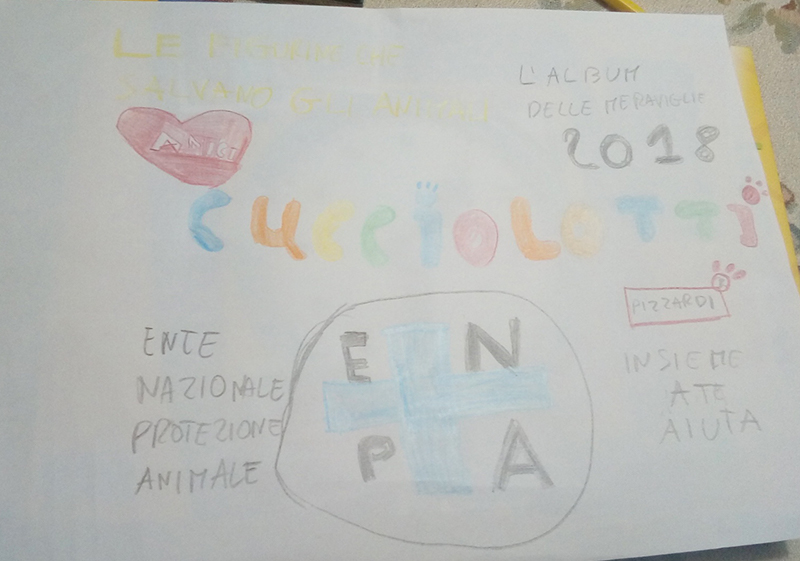 LE FIGURINE CHE
SALVANO GLI ANIMALI
L'ALBUM
DELLE MERAVIGLIE
2018
AMICI
CUCCIOLOTTI
PIZZARDI
ENTE
NAZIONALE
PROTEZIONE
ANIMALE
E N
P A
INSIEME
A TE
AIUTA